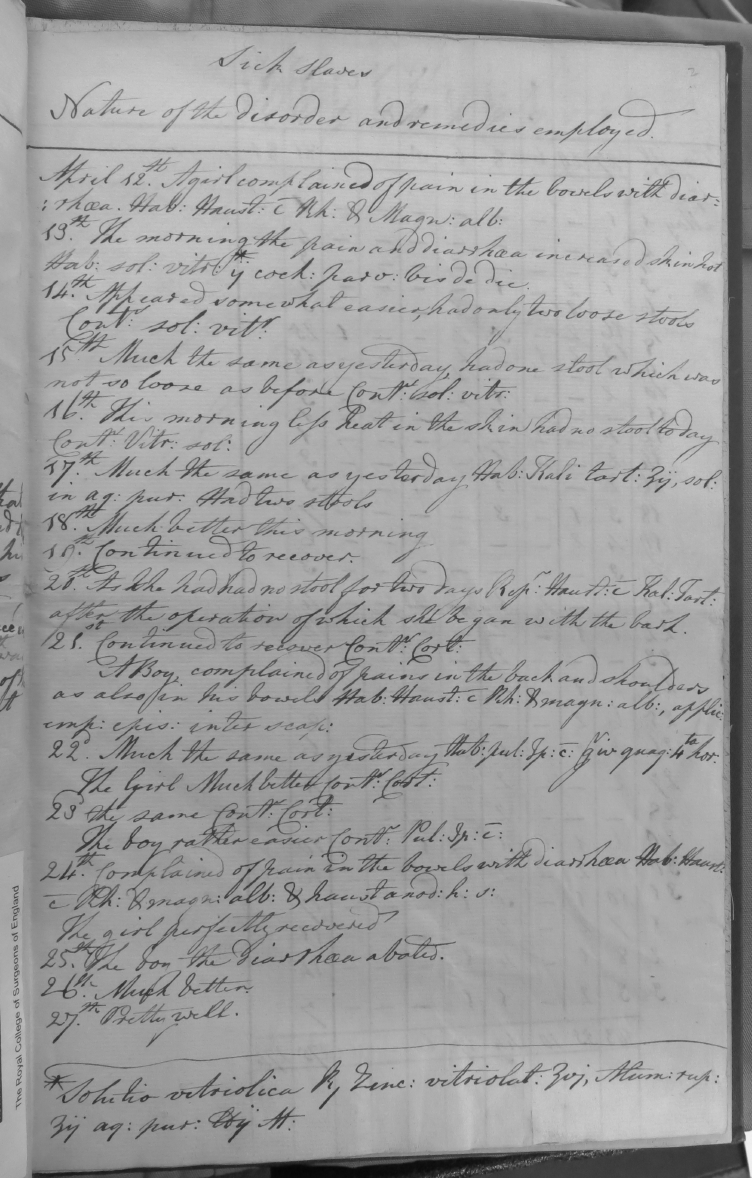 Sick Slaves
2
Nature of the disorder and remedies employed.
April 12th. A girl complained of pain in the bowels with diar=
:rhœa. Hab: Haust: c̄ Rh: & Magn: alb:
13th. The morning the pain and diarrhœa increased skin hot
Hab: sol: vitr:* ij coch: parv: bis de die.
14th. Appeared somewhat easier, had only two loose stools
Contr. sol: vitr.
15th Much the same as yesterday, had one stool which was
not so loose as before Contr. sol: vitr:
16th. This morning less heat in the skin had no stool to day
Contr. Vitr: sol:
17th. Much the same as yesterday Hab: Kali tart: ʒij, sol:
in aq: pur: Had two stools
18th. Much better this morning
19th. Continued to recover.
20th. As she had had no stool for two days Repr. Haust: c̄ Kal: Tart:
after the operation of which she began with the bark.
21st. Continued to recover Contr. Cort:
A Boy complained of pains in the back and shoulders
as also in his bowels Hab: Haust: c̄ Rh: & magn: alb:, applic:
emp: epis: inter scap:
22d. Much the same as yesterday Hab: pul: Ip: c̄: gr iv quaq: 4ta hor:
The Girl Much better Contr. Cort:
23 the same Contr. Cort:
The boy rather easier Contr. Pul: Ip: c̄:
24th. Complained of pain in the bowels with diarrhœa Hab: Haust:
c̄ Rh: & magn: alb: & haust anod: h: s:
The girl perfectly recovered
25th. The boy the Diarrhœa abated.
26th. Much better.
27th. Pretty well.
* Solutio vitriolica ℞ Zinc: vitriolat: ʒvj, Alum: rup:
ʒij aq: pur: ℔ij M:
The Royal College of Surgeons of England